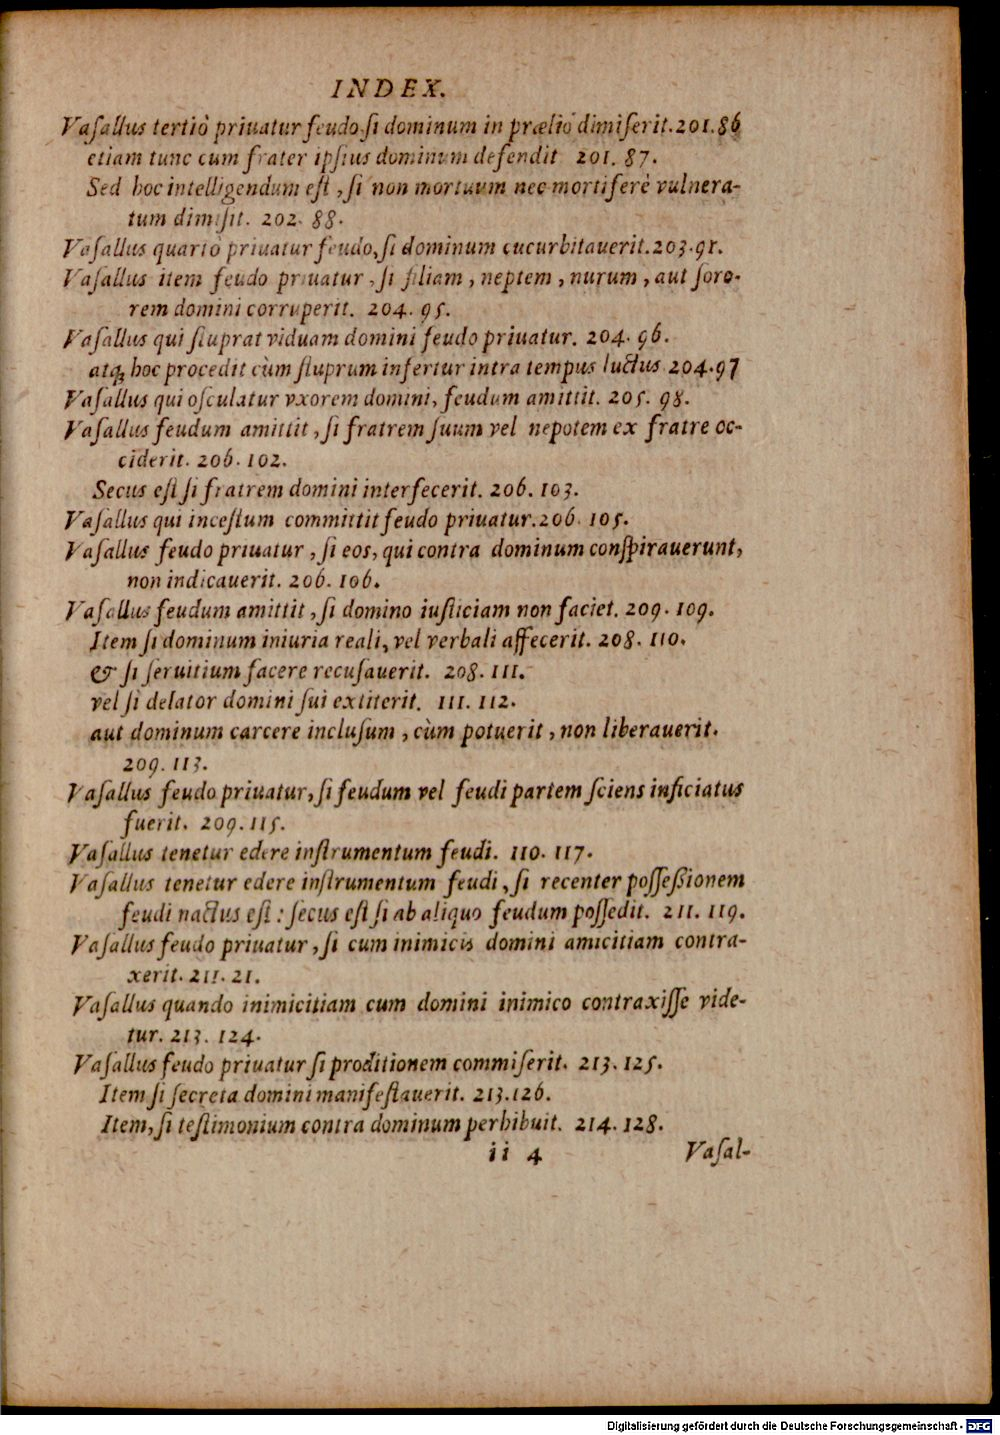 INDEX.
Vaſallus tertiò priuatur feudo, ſi dominum in prælio dimiſerit. 201. 86
etiam tunc cum frater ipſius dominum defendit 201. 87.
Sed hoc intelligendum eſt, ſi non mortuum nec mortiferè vulnera-
tum dimiſit. 202. 88.
Vaſallus quartò priuatur feudo, ſi dominum cucurbitauerit. 203. 91.
Vaſallus item feudo priuatur, ſi filiam, neptem, nurum, aut ſoro-
rem domini corruperit. 204. 95.
Vaſallus qui ſtuprat viduam domini feudo priuatur. 204. 96.
atq; hoc procedit cùm ſtuprum infertur intra tempus luctus 204. 97
Vaſallus qui oſculatur vxorem domini, feudum amittit. 205. 98.
Vaſallus feudum amittit, ſi fratrem ſuum vel nepotem ex fratre oc-
ciderit. 206. 102.
Secus eſt ſi fratrem domini interfecerit. 206. 103.
Vaſallus qui inceſtum committit feudo priuatur. 206. 105.
Vaſallus feudo priuatur, ſi eos, qui contra dominum conſpirauerunt,
non indicauerit. 206. 106.
Vaſallus feudum amittit, ſi domino iuſticiam non faciet. 209. 109.
Item ſi dominum iniuria reali, vel verbali affecerit. 208. 110.
& ſi ſeruitium facere recuſauerit. 208. 111.
vel ſi delator domini ſui extiterit. 111. 112.
aut dominum carcere incluſum, cùm potuerit, non liberauerit.
209. 113.
Vaſallus feudo priuatur, ſi feudum vel feudi partem ſciens inficiatus
fuerit. 209. 115.
Vaſallus tenetur edere inſtrumentum feudi. 110. 117.
Vaſallus tenetur edere inſtrumentum feudi, ſi recenter poſſeßionem
feudi nactus eſt: ſecus eſt ſi ab aliquo feudum poſſedit. 211. 119.
Vaſallus feudo priuatur, ſi cum inimicis domini amicitiam contra-
xerit. 211. 21.
Vaſallus quando inimicitiam cum domini inimico contraxiſſe vide-
tur. 213. 124.
Vaſallus feudo priuatur ſi proditionem commiſerit. 213. 125.
Item ſi ſecreta domini manifeſtauerit. 213. 126.
Item, ſi teſtimonium contra dominum perhibuit. 214. 128.
ii 4 Vaſal-
Digitalisierung gefördert durch die Deutsche Forschungsgemeinschaft - DFG